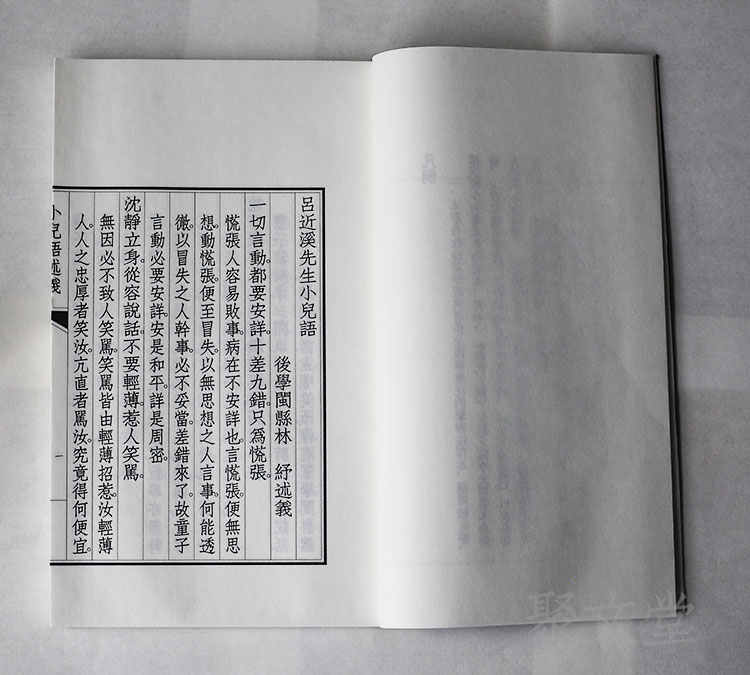 呂近溪先生小兒語
後學閩縣林 紓述義
一切言動。都要安詳。十差九錯。只爲慌張。
慌張人容易敗事。病在不安詳也。言慌張。便無思
想。動慌張。便至冒失。以無思想之人言事。何能透
徹。以冒失之人幹事。必不妥當。差錯來了。故童子
言動必要安詳。安是和平。詳是周密。
沈靜立身。從容說話。不要輕薄。惹人笑罵。
無因必不致人笑罵。笑罵皆由輕薄招惹。汝輕薄
人。人之忠厚者笑汝。亢直者罵汝。究竟得何便宜。
小兒語述義
一
凡例
聚文堂